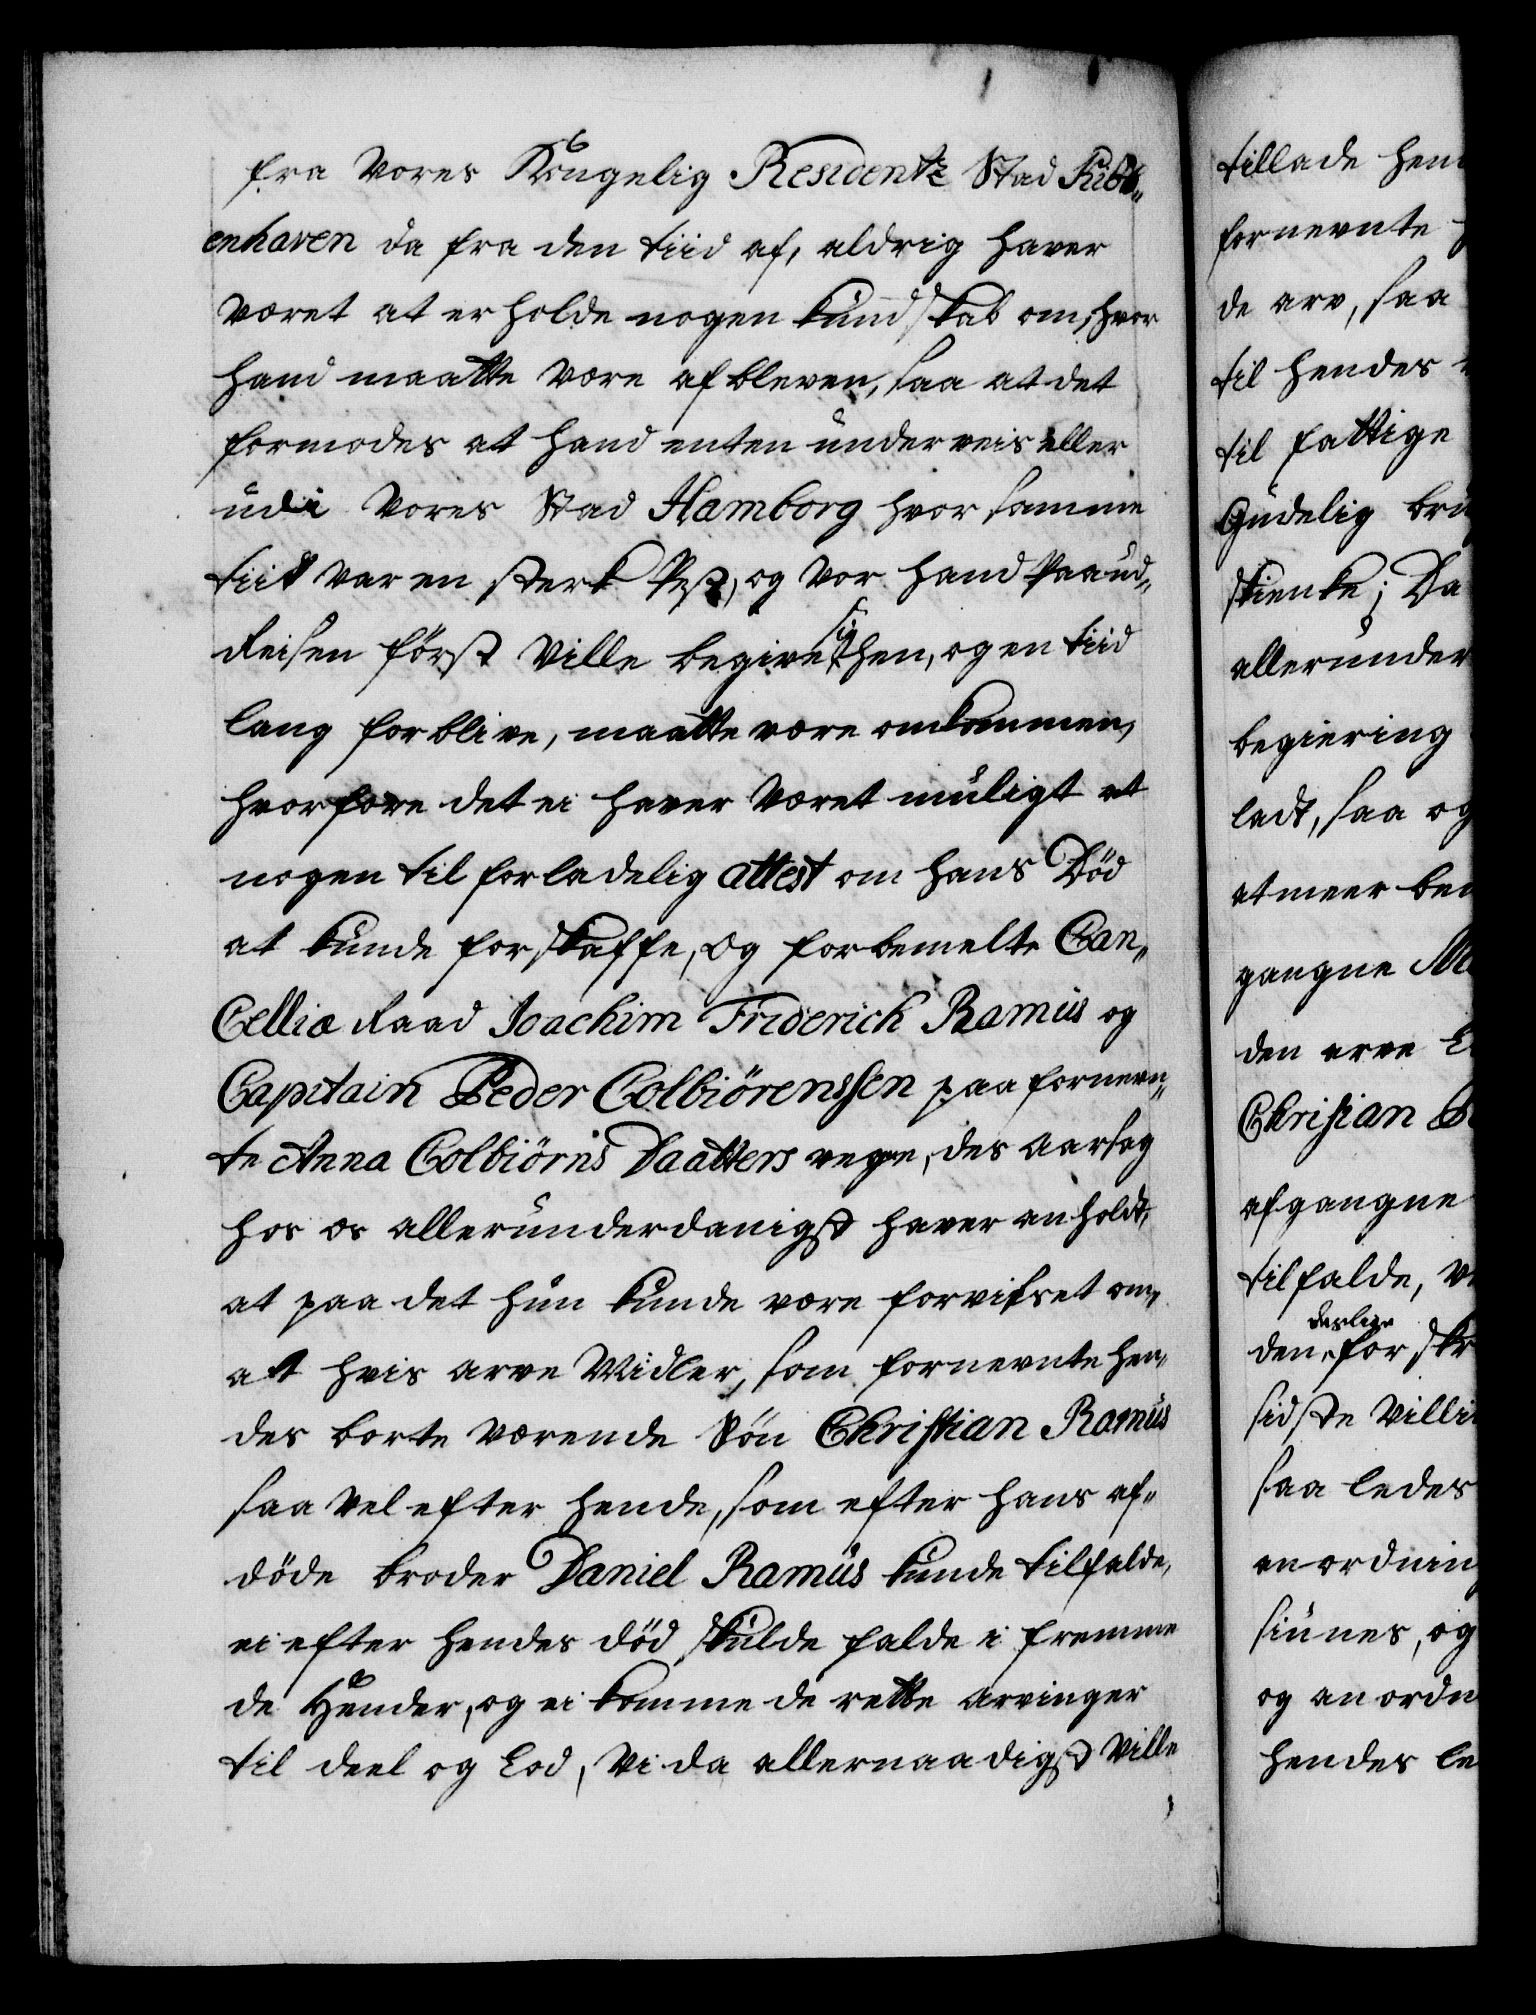 fra Vores Kongelig Residentz Stad Kiöb„
enhaven da fra den tiid af, aldrig haver
været at erholde nogen kundskab om, hvor
hand maatte være afbleven, saa at det
formodes at hand enten underveis eller
udi Vores Stad Hamborg hvor samme
tiid var en sterk Pest, og vor hand paa ud„
Reisen først ville begive sig hen, og en tiid
lang forblive, maatte være omkommen,
hvorfore det ei haver været muligt at
nogen tilforladelig attest om hans Död
at kunde forskaffe, og forbemelte Can„
Cellie Raad Joachim Friderich Ramus og
Capitain Peder Colbiörenssen paa fornevn„
te Anna Colbiörns Daatters vegne, des aarsag
hos os allerunderdanigst haver anholdt,
at paa det hun kunde være forvisset om,
at hvis arve Midler, som fornevnte hen„
des borte værende Sön Christian Ramus
saa vel efter hende, som efter hans af„
döde broder Daniel Ramus kunde tilfalde,
ei efter hendes död skulde falde i fremme
de Hender, og ei komme de rette arvinger
til deel og Lod, Vi da allernaadigst ville
tillade hen
fornevnte
de arv, saa
til hendes
til fattige
Gudelig bru
skienke; Da
allerunder
begiering
ladt, saa og
at meer be
gangne
den arve
Christian
afgangne
tilfalde, v
deslige
den forskr
sidste villi
saaledes
anordning
siunes, og
og anordn
hendes le